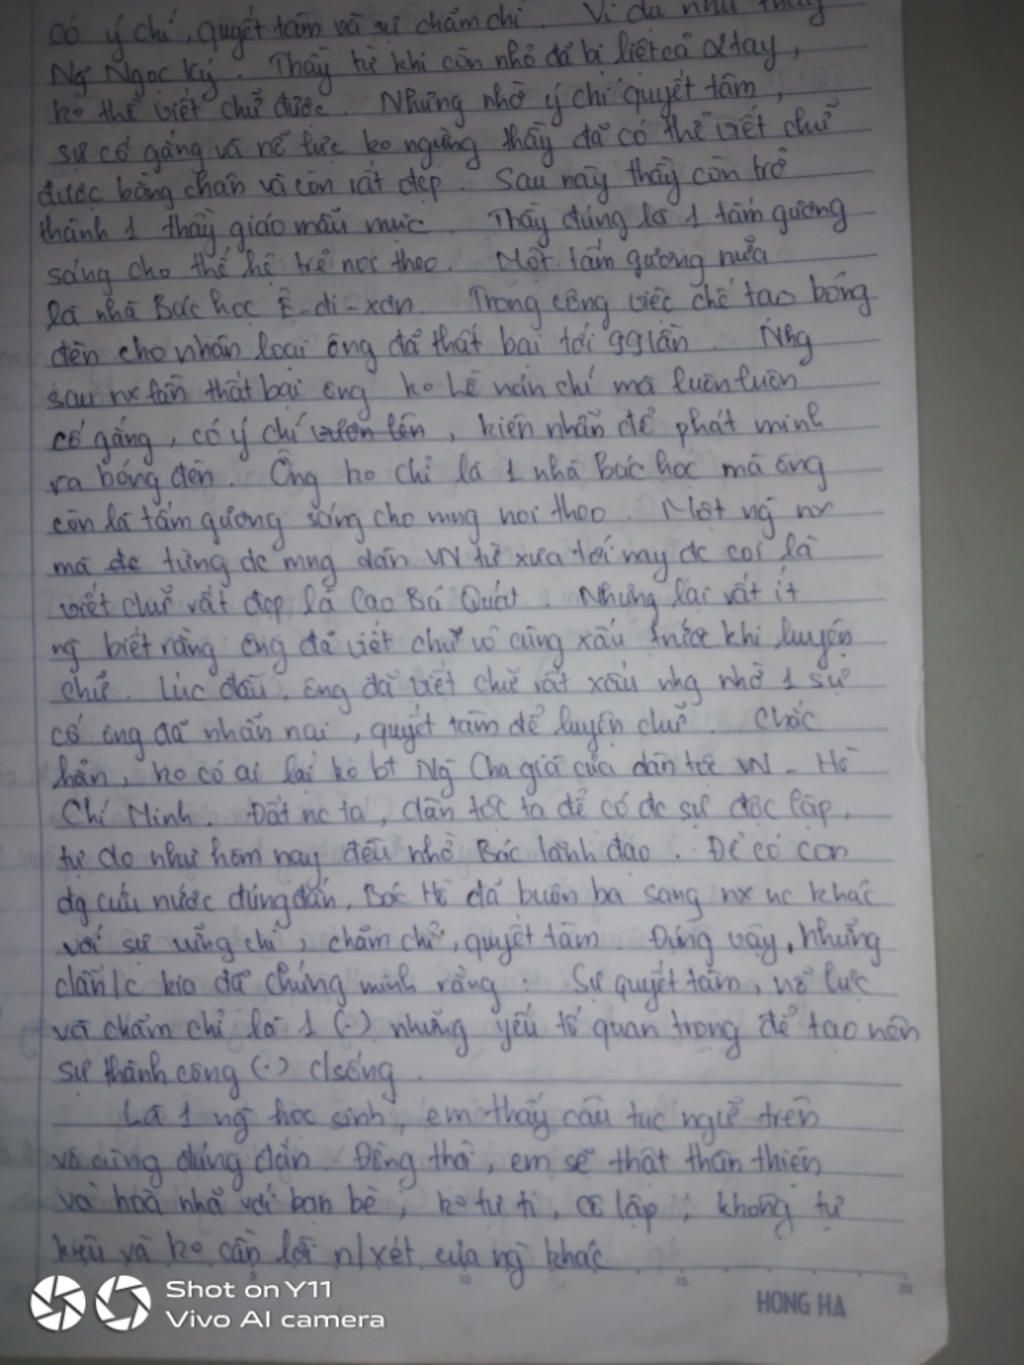 có ý chí, quyết tâm và sự chăm chỉ. Ví dụ như thầy
Ng̃ Ngọc Ký. Thầy từ khi còn nhỏ đã bị liệt cả 2 tay,
ko thể viết chữ được. Nhưng nhờ ý chí quyết tâm,
sự cố gắng và nỗ lực ko ngừng thầy đã có thể viết chữ
được bằng chân và còn rất đẹp. Sau này thầy còn trở
thành 1 thầy giáo mẫu mực. Thầy đúng là 1 tấm gương
sáng cho thế hệ trẻ noi theo. Một tấm gương nữa
là nhà Bác học Ê-di-xơn. Trong công việc chế tạo bóng
đèn cho nhân loại ông đã thất bại tới 99 lần. Nhg
sau nx lần thất bại ông ko hề nản chí mà luôn luôn
cố gắng, có ý chí vươn lên, kiên nhẫn để phát minh
ra bóng đèn. Ông ko chỉ là 1 nhà Bác học mà ông
còn là tấm gương sáng cho mng noi theo. Một ng̃ nx
mà đc từng đc mng dân VN từ xưa tới nay đc coi là
viết chữ rất đẹp là Cao Bá Quát. Nhưng lại rất ít
ng̃ biết rằng ông đã viết chữ vô cùng xấu trước khi luyện
chữ. Lúc đầu, ông đã viết chữ rất xấu nhg nhờ 1 sự
cố ông đã nhẫn nại, quyết tâm để luyện chữ. Chắc
hẳn, ko có ai lại ko bt Ng̃ Cha già của dân tộc VN - Hồ
Chí Minh. Đất nc ta, dân tộc ta để có đc sự độc lập,
tự do như hôm nay đều nhờ Bác lãnh đạo. Để có con
đg cứu nước đúng đắn, Bác Hồ đã buôn ba sang nx nc khác
với sự vững chí, chăm chỉ, quyết tâm. Đúng vậy, những
dẫn/c kia đã chứng minh rằng: Sự quyết tâm, nỗ lực
và chăm chỉ là 1 (.) những yếu tố quan trọng để tạo nên
sự thành công (.) c/sống.
Là 1 ng̃ học sinh, em thấy câu tục ngữ trên
vô cùng đúng đắn. Đồng thời, em sẽ thật thân thiện
và hoà nhã với bạn bè, ko tự ti, cô lập; không tự
kiêu và ko cần lời n/xét của ng̃ khác
10 15 20
HONG HA
Shot on Y11
Vivo AI camera